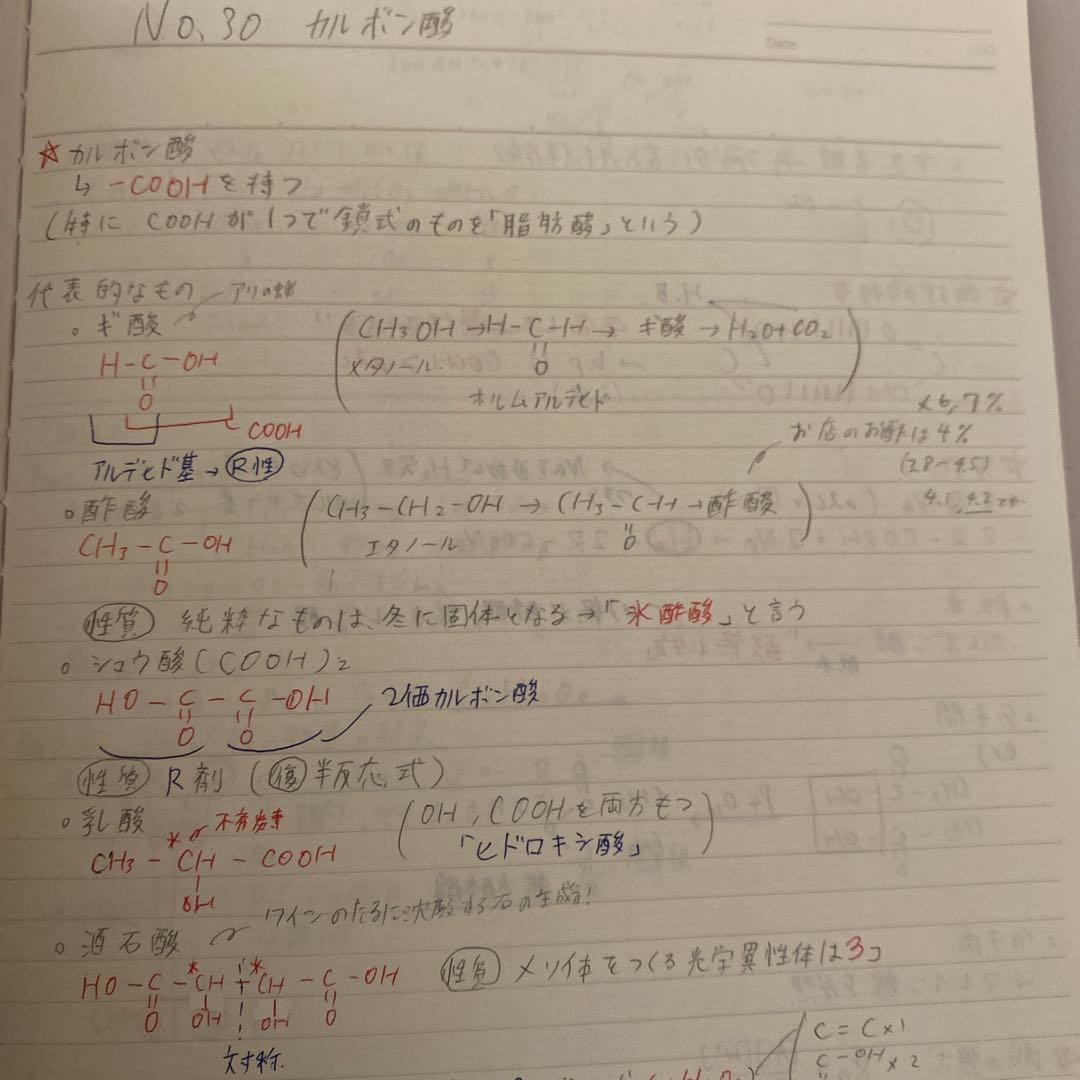 No.30 カルボン酸
☆ カルボン酸
↳ -COOHを持つ
(特に COOHが1つで鎖式のものを「脂肪酸」という)
代表的なもの
アリの蟻
。ギ酸
H-C-OH
O
COOH
アルデヒド基→R性
(CH3OH→H-C-H→ギ酸→H2O+CO2)
メタノール O
ホルムアルデヒド
×6,7%
お店のお酢は4%
(3.8〜4.5)
4.1, 4.2
。酢酸
CH3-C-OH
O
(CH3-CH2-OH → CH3-C-H→酢酸)
エタノール O
性質 純粋なものは、冬に固体となる→「氷酢酸」と言う
。シュウ酸(COOH)2
HO-C-C-OH 2価カルボン酸
O O
性質 R剤 (半反応式)
。乳酸
* 不斉炭素
CH3-CH-COOH
OH
(OH, COOHを両方もつ
「ヒドロキシ酸」)
ワインのたるに沈殿する石の生成!
。酒石酸
HO-C-*CH-*CH-C-OH
O OH OH O
対称
性質 メソ体をつくる光学異性体は3コ
C=C×1
C-OH×2